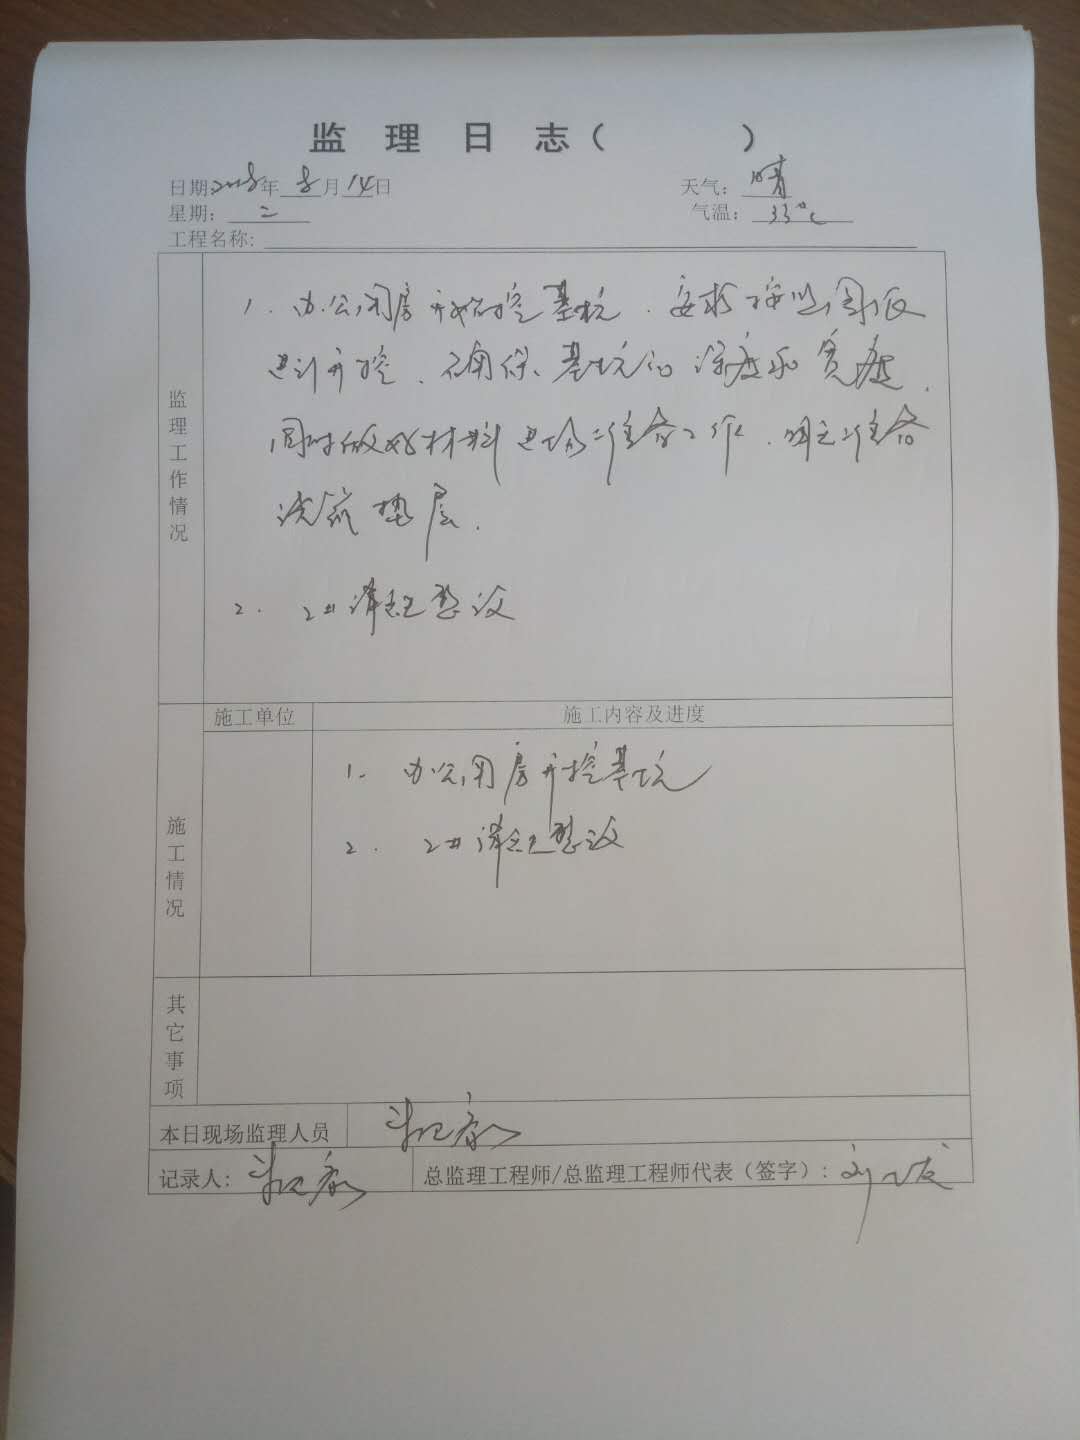 监 理 日 志（ ）
日期：2018年 8 月 14日 天气： 晴
星期： 二 气温： 33℃
工程名称：
监理工作情况
1. 办公用房开始挖基坑．要求按照图纸
进行开挖．确保基坑的深度和宽度．
同时做好材料进场准备工作．明天准备
浇筑垫层．
2. 2#清理整改
施工情况
施工单位 施工内容及进度
1. 办公用房开挖基坑
2. 2#清理整改
其它事项
本日现场监理人员
记录人： 总监理工程师/总监理工程师代表（签字）：刘